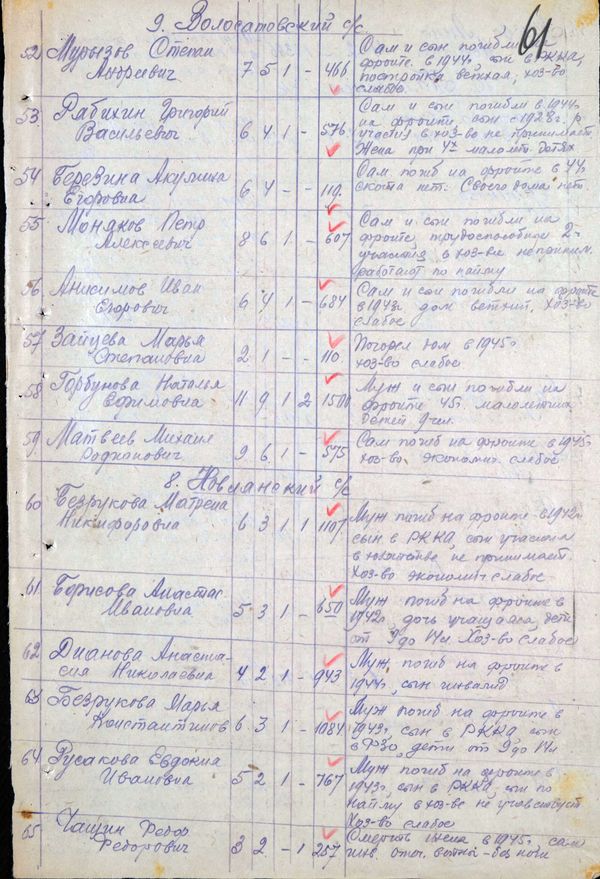 61
9. Волосатовский с/с
52 Мурызов Степан Сам и сын погибли на
Андреевич 7 5 1 - 466 фронте в 1944, сын в РККА,
постройка ветхая, хоз-во
слабое
53. Рабихин Григорий Сам и сын погибли в 1944г
Васильевич 6 4 1 - 576 на фронте, сын с 1928 г. р.
участия в хоз-во не принимает.
Жена при 4х малолет. детях
54 Березина Акулина Сам погиб на фронте в 44г
Егоровна 6 4 - - 110 скота нет. Своего дома нет
55 Моняков Петр Сам и сын погибли на
Алексеевич 8 6 1 - 607 фронте, трудоспособные 2-
участия в хоз-ве не приним.
работают по найму
56 Анисимов Иван Сам и сын погибли на фронте
Егорович 6 4 1 - 684 в 1943г дом ветхий, хоз-во
слабое
57 Зайцева Марья Погорел дом в 1945г
Степановна 2 1 - - 110 хоз-во слабое
58 Горбунова Наталья Муж и сын погибли на
Ефимовна 11 9 1 2 1500 фронте 45г. малолетних
детей 9 чел.
59. Матвеев Михаил Сам погиб на фронте в 1945г
Родионович 9 6 1 - 575 хоз-во экономич. слабое
8. Новланский с/с
60 Безрукова Матрена Муж погиб на фронте в 1942г
Никифоровна 6 3 1 1 1107 сын в РККА, сын участия
в хозяйстве не принимает.
Хоз-во экономич слабое
61 Борисова Анастас Муж погиб на фронте в
Ивановна 5 3 1 - 650 1942г, дочь учащаяся, дети
от 9 до 14л Хоз-во слабое
62 Дианова Анаста- Муж погиб на фронте в
сия Николаевна 4 2 1 - 943 1944г, сын инвалид
63 Безрукова Марья Муж погиб на фронте в
Константинов 6 3 1 - 1084 1943г, сын в РККА, сын
в ФЗО, дети от 9 до 14л
64 Русакова Евдокия Муж погиб на фронте в
Ивановна 5 2 1 - 767 1943г, сын в РККА, сын по
найму в хоз-ве не участвует
Хоз-во слабое
65 Чащин Федор Смерть жена в 1945г сам
Федорович 3 2 - 1 257 инв. отеч. войны - без ноги